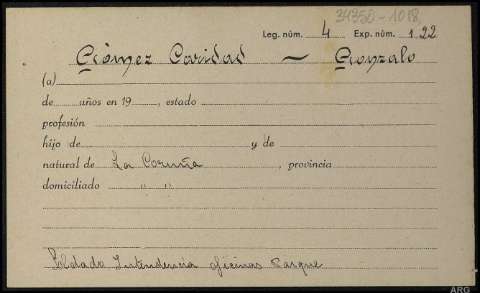 34350-1018
Leg. núm. 4 Exp. núm. 122
Gómez Caridad — Gonzalo
(a)
de años en 19 , estado
profesión
hijo de y de
natural de La Coruña , provincia
domiciliado " "
Soldado Intendencia oficinas Parque
ARG